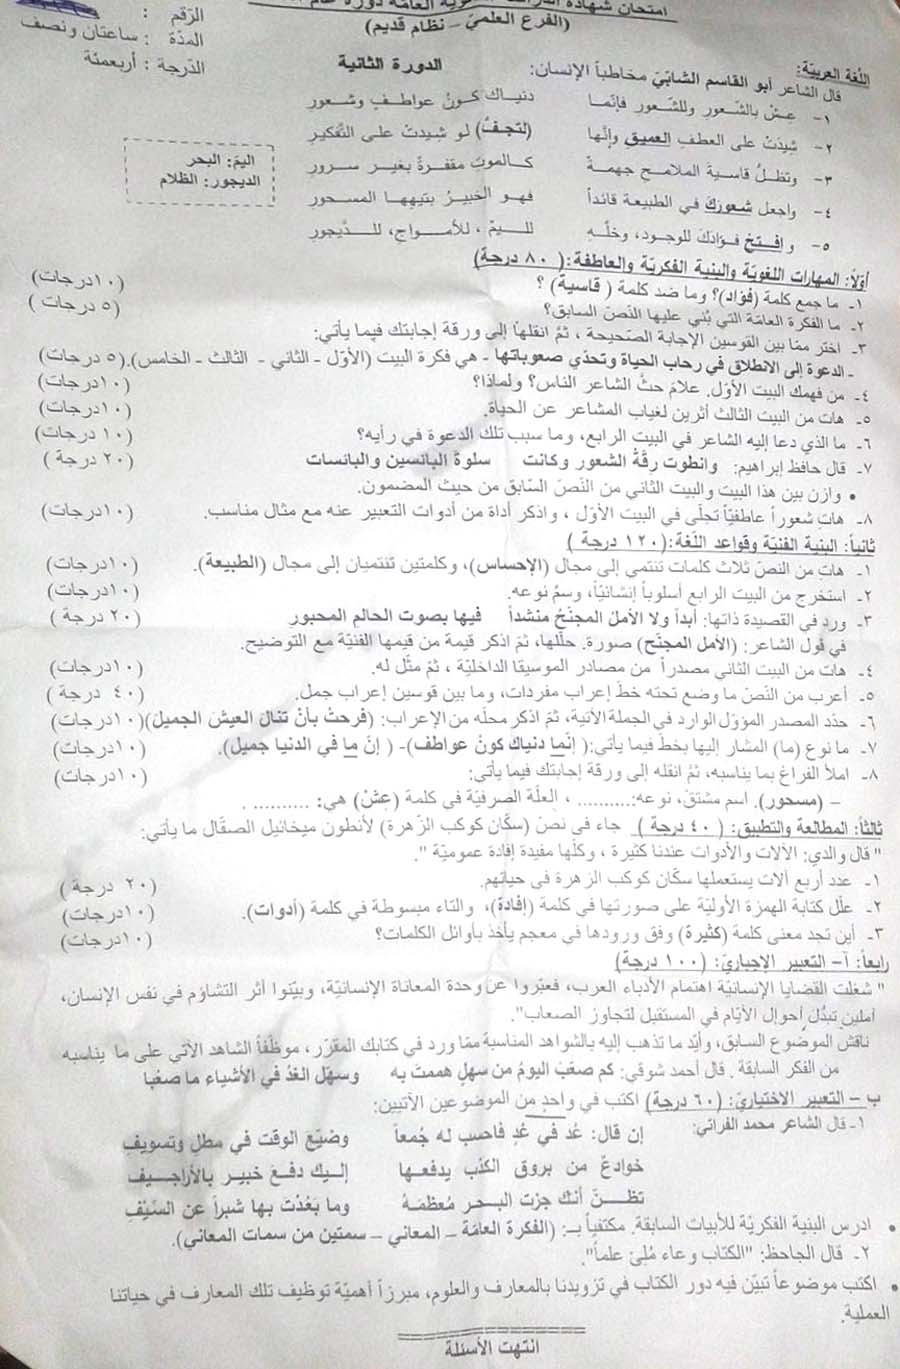 امتحان شهادة الدراسة الثانوية العامّة دورة عام
(الفرع العلميّ – نظام قديم)
الرّقم :
المدّة : ساعتان ونصف
الدّرجة : أربعمئة
اللّغة العربيّة:
الدورة الثانية
قال الشاعر أبو القاسم الشابّيّ مخاطباً الإنسان:
١- عِشْ بالشّعور وللشّعور فإنّما دنياك كونُ عواطفٍ وشعور
٢- شِيدَتْ على العطف العميق وإنّها (لتجفُّ) لو شِيدتْ على التّفكير
٣- وتظلُّ قاسية الملامح جهمةً كالموت مقفرةً بغير سرور
٤- واجعل شعورَكَ في الطبيعة قائداً فهو الخبيرُ بتيهها المسحور
٥- وافتحْ فؤادك للوجود، وخلِّهِ لليمّ، للأمواج، للدَّيجور
اليمّ: البحر
الديجور: الظلام
أوّلاً: المهارات اللغويّة والبنية الفكريّة والعاطفة: (٨٠ درجة)
١- ما جمع كلمة (فؤاد)؟ وما ضد كلمة (قاسية) ؟ (١٠درجات)
٢- ما الفكرة العامّة التي بُني عليها النّصّ السابق؟ (٥ درجات )
٣- اختر ممّا بين القوسين الإجابة الصّحيحة ، ثمّ انقلها إلى ورقة إجابتك فيما يأتي:
- الدعوة إلى الانطلاق في رحاب الحياة وتحدّي صعوباتها - هي فكرة البيت (الأوّل - الثاني - الثالث - الخامس). (٥ درجات)
٤- من فهمك البيت الأوّل. علامَ حثّ الشاعر الناس؟ ولماذا؟ (١٠درجات)
٥- هات من البيت الثالث أثرين لغياب المشاعر عن الحياة. (١٠درجات)
٦- ما الذي دعا إليه الشاعر في البيت الرابع، وما سبب تلك الدعوة في رأيه؟ (١٠ درجات)
٧- قال حافظ إبراهيم: وانطوت رقّةُ الشعور وكانت سلوةَ البائسين والبائسات (٢٠ درجة )
• وازن بين هذا البيت والبيت الثاني من النّصّ السّابق من حيث المضمون.
٨- هاتِ شعوراً عاطفيّاً تجلّى في البيت الأوّل ، واذكر أداة من أدوات التعبير عنه مع مثال مناسب. (١٠درجات)
ثانياً: البنية الفنيّة وقواعد اللّغة: (١٢٠ درجة )
١- هات من النّصّ ثلاث كلمات تنتمي إلى مجال (الإحساس)، وكلمتين تنتميان إلى مجال (الطبيعة). (١٠درجات)
٢- استخرج من البيت الرابع أسلوباً إنشائيّاً، وسمِّ نوعه. (١٠درجات)
٣- ورد في القصيدة ذاتها: أبداً ولا الأمل المجنّحُ منشداً فيها بصوت الحالم المحبور (٢٠ درجة )
في قول الشاعر: (الأمل المجنّح) صورة. حلّلها، ثمّ اذكر قيمة من قيمها الفنيّة مع التوضيح.
٤- هات من البيت الثاني مصدراً من مصادر الموسيقا الداخليّة ، ثمّ مثّل له. (١٠درجات)
٥- أعرب من النّصّ ما وضع تحته خطّ إعراب مفردات، وما بين قوسين إعراب جمل. (٤٠ درجة )
٦- حدّد المصدر المؤوّل الوارد في الجملة الآتية، ثمّ اذكر محلّه من الإعراب: (فرحتُ بأنْ تنالَ العيشَ الجميل) (١٠درجات)
٧- ما نوع (ما) المشار إليها بخطّ فيما يأتي: ( إنّما دنياك كونُ عواطف) - ( إنّ ما في الدنيا جميل). (١٠درجات)
٨- املأ الفراغ بما يناسبه، ثمّ انقله إلى ورقة إجابتك فيما يأتي: (١٠درجات)
– (مسحور). اسم مشتقّ، نوعه:.......... ، العلّة الصرفيّة في كلمة (عِشْ) هي: .......... .
ثالثاً: المطالعة والتطبيق: (٤٠ درجة ) جاء في نصّ (سكّان كوكب الزّهرة) لأنطون ميخائيل الصقّال ما يأتي:
" قال والدي: الآلات والأدوات عندنا كثيرة ، وكلّها مفيدة إفادة عموميّة ".
١- عدد أربع آلات يستعملها سكّان كوكب الزهرة في حياتهم. (٢٠ درجة )
٢- علّل كتابة الهمزة الأوليّة على صورتها في كلمة (إفادة)، والتاء مبسوطة في كلمة (أدوات). (١٠درجات)
٣- أين تجد معنى كلمة (كثيرة) وفق ورودها في معجم يأخذ بأوائل الكلمات؟ (١٠درجات)
رابعاً: آ– التعبير الإجباريّ: (١٠٠ درجة)
" شغلت القضايا الإنسانيّة اهتمام الأدباء العرب، فعبّروا عن وحدة المعاناة الإنسانيّة، وبيّنوا أثر التشاؤم في نفس الإنسان،
آملين تبدّل أحوال الأيّام في المستقبل لتجاوز الصعاب".
ناقش الموضوع السابق، وأيّد ما تذهب إليه بالشواهد المناسبة ممّا ورد في كتابك المقرّر، موظّفاً الشاهد الآتي على ما يناسبه
من الفكر السابقة . قال أحمد شوقي: كم صعّبَ اليومُ من سهلٍ هممتَ به وسهّل الغدُ في الأشياء ما صعُبا
ب – التعبير الاختياريّ: (٦٠ درجة) اكتب في واحدٍ من الموضوعين الآتيين:
١- قال الشاعر محمد الفراتي: إن قال: غد في غدٍ فاحسب له جُمعاً وضيّع الوقت في مطلٍ وتسويف
خوادعٌ من بروق الكذب يدفعها إليك دفعَ خبيرٍ بالأراجيف
تظنّ أنّك جزت البحر مُعظمَهُ وما بَعُدْتَ بها شبراً عن السِّيفِ
• ادرس البنية الفكريّة للأبيات السابقة. مكتفياً بـ: (الفكرة العامّة – المعاني – سمتين من سمات المعاني).
٢- قال الجاحظ: "الكتاب وعاء مُلِئ علماً".
• اكتب موضوعاً تبيّن فيه دور الكتاب في تزويدنا بالمعارف والعلوم، مبرزاً أهميّة توظيف تلك المعارف في حياتنا
العملية.
انتهت الأسئلة